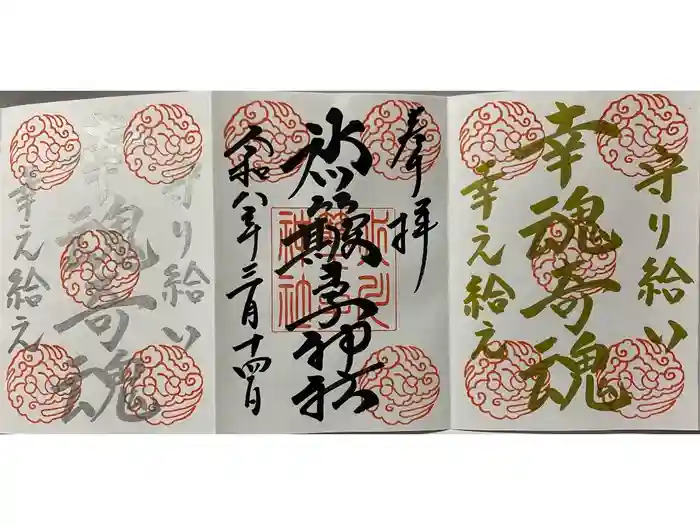 守り給い
幸魂奇魂
幸え給え
奉拝
氷川神社
令和八年三月十四日
守り給い
幸魂奇魂
幸え給え